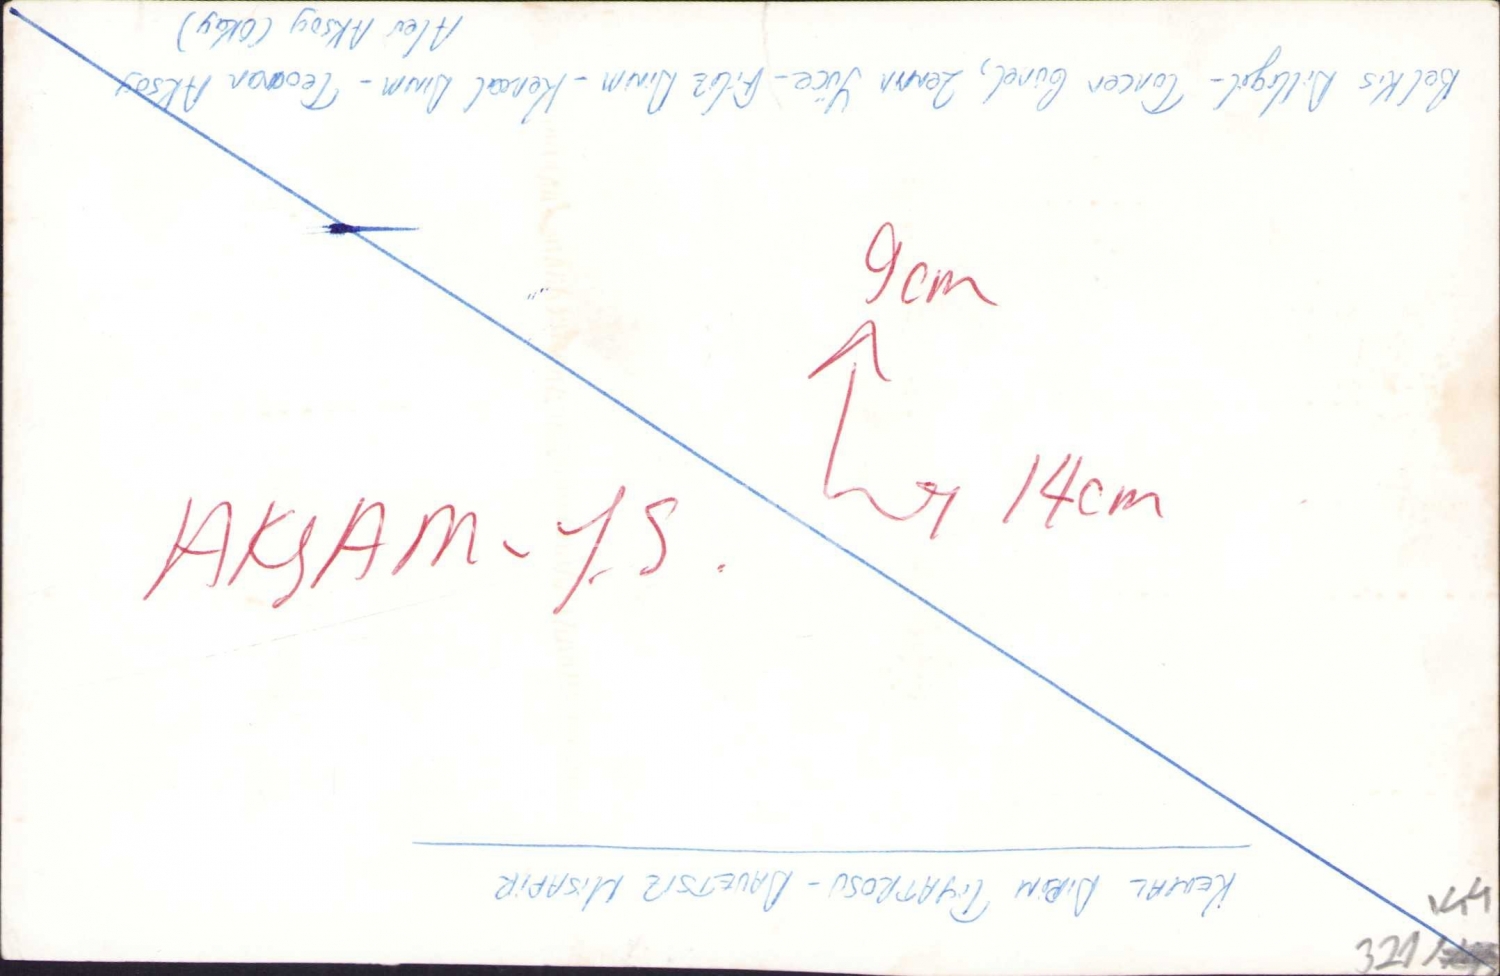 Belkıs Dilligil - Tuncer Günel, Zerrin Yüce - Filiz Dirim - Kemal Dirim - Teoman Aksoy
Alev Aksoy (Okay)
9cm
14cm
AKŞAM - Y.S.
KEMAL DİRİM TİYATROSU - DAVETSİZ MİSAFİR
321